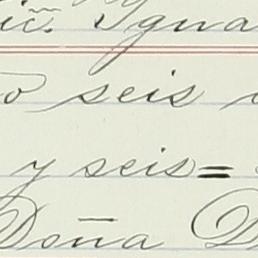 Igna
seis
y seis=
Doña D